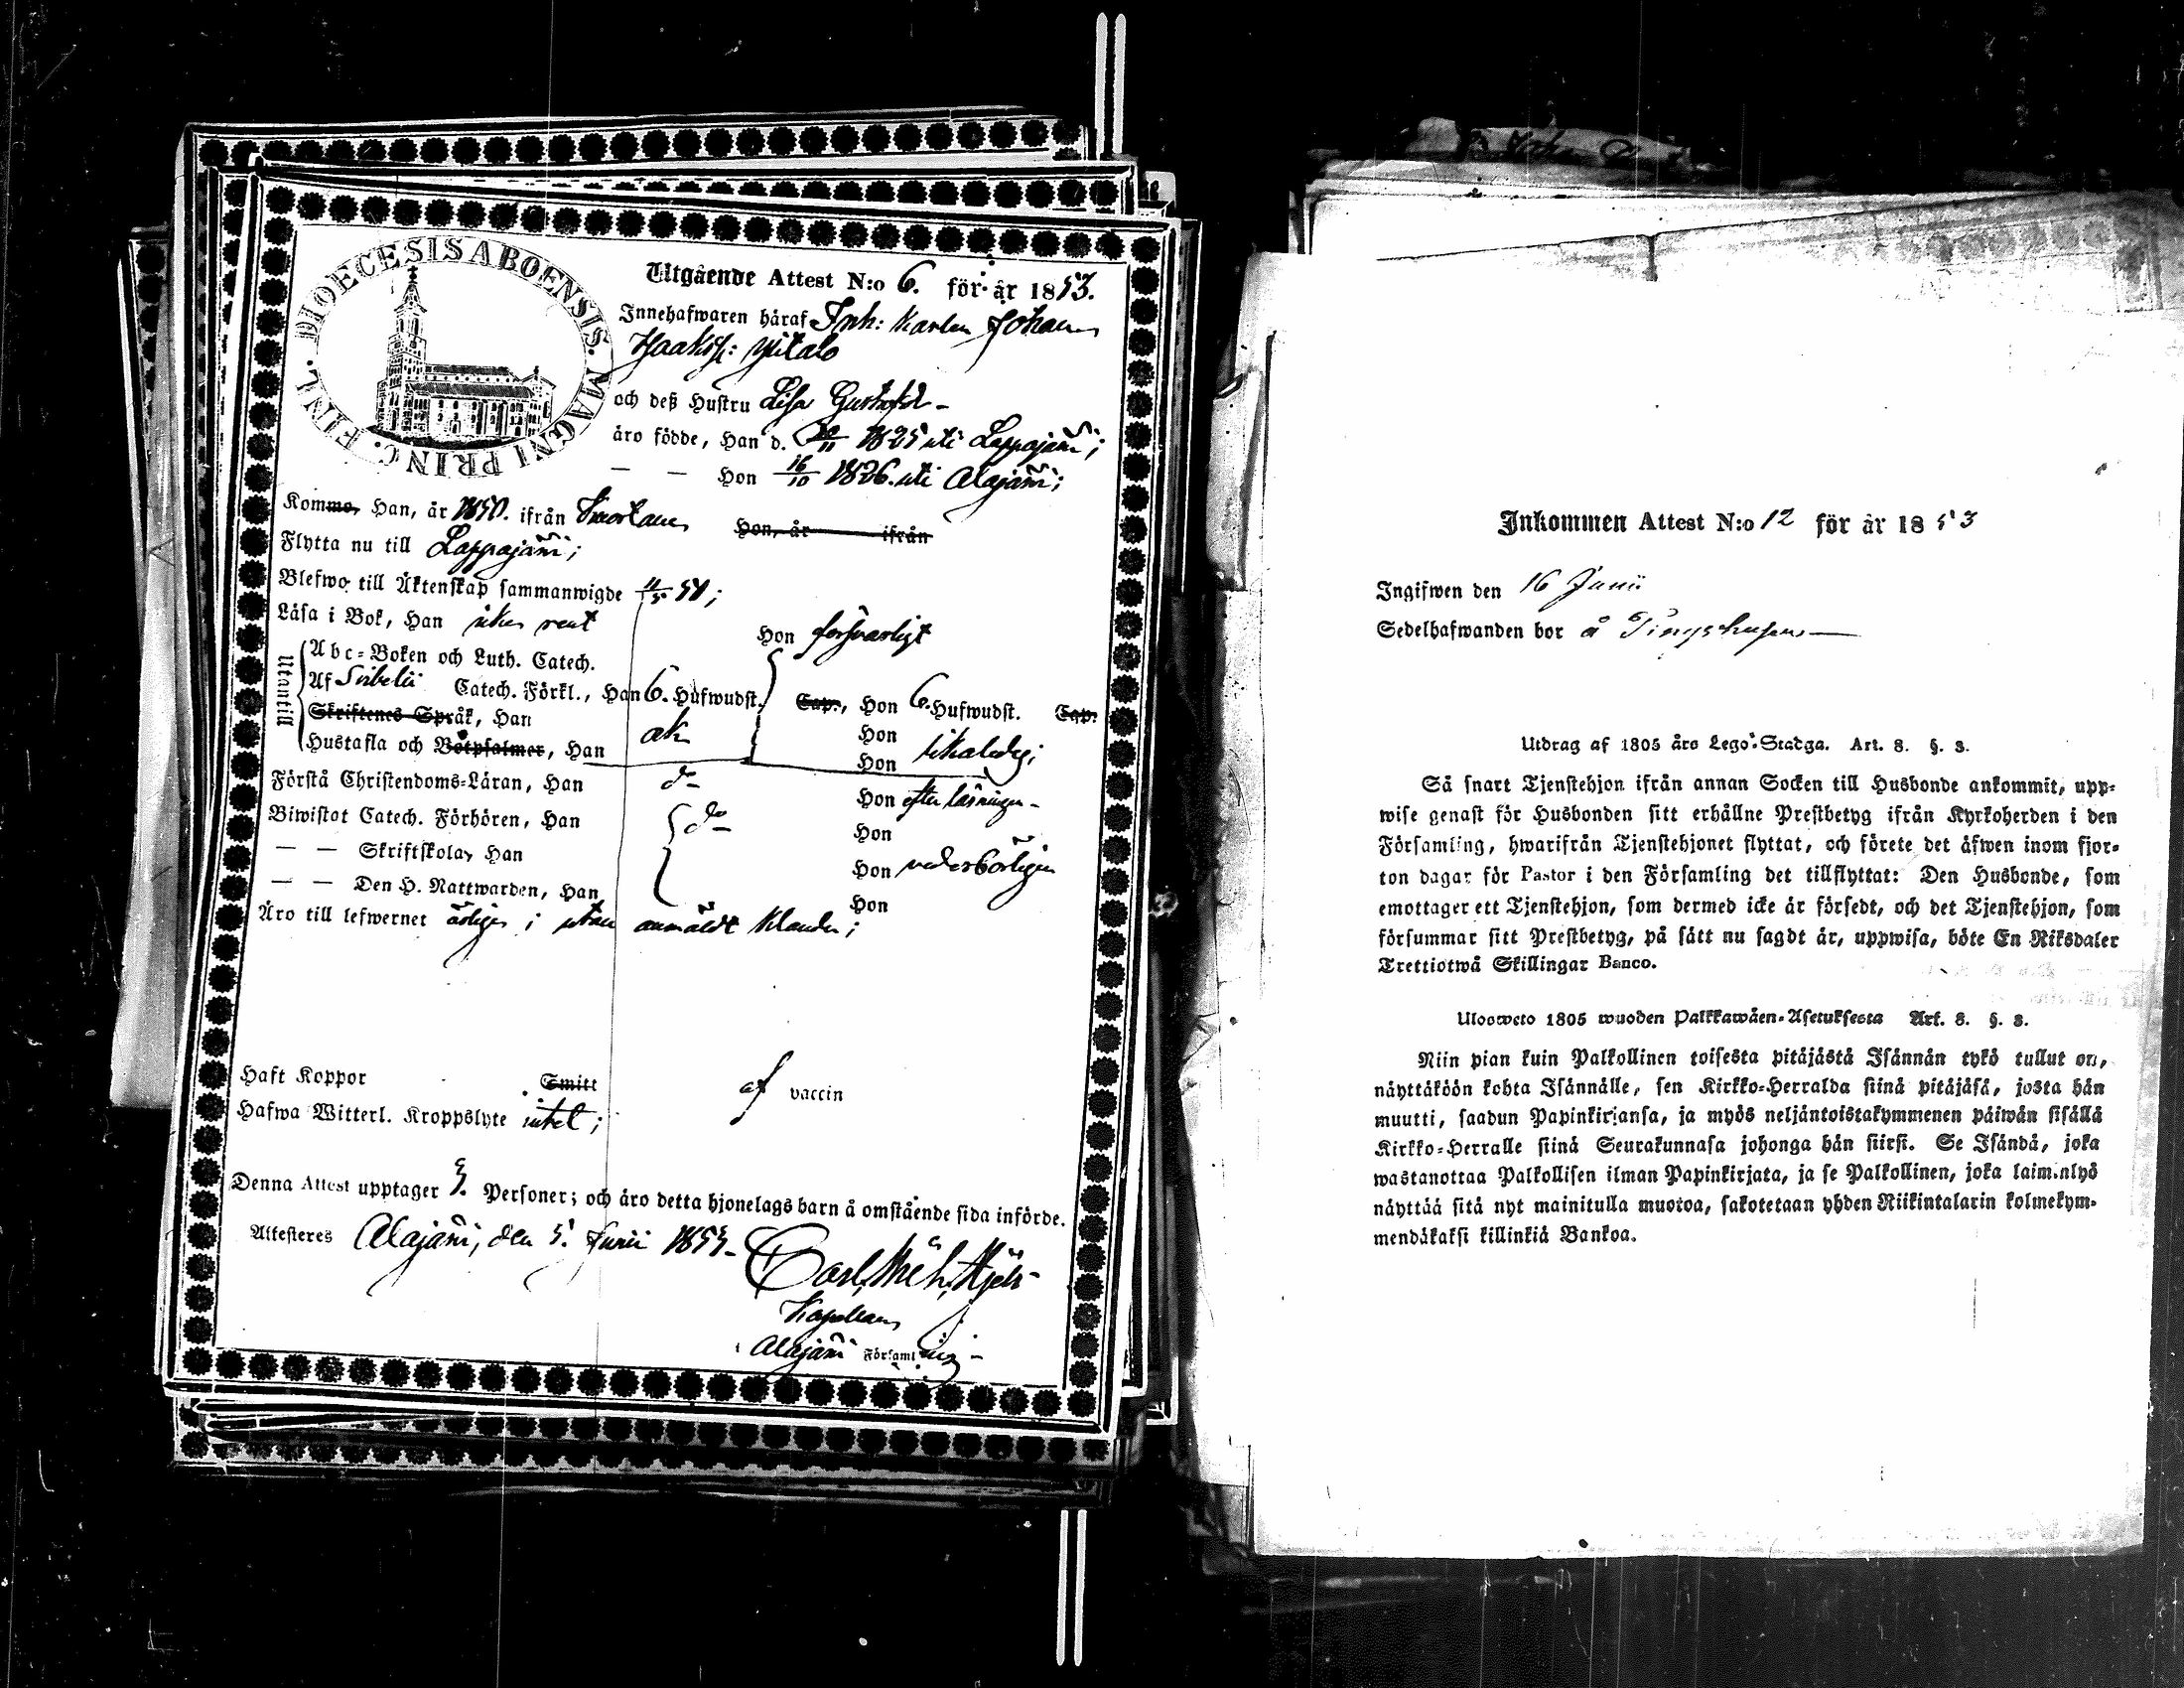 DIOECESIS ABOENSIS. MAGNI PRINC. FINL.
Utgående Attest N:o 6. för år 1853.
Innehafwaren håraf Inh: Karlen Johan
Isaakss: Ylitalo
och deß Hustru Lisa Gustafsdr -
åro födde, Han d. 1825 uti Lappajärvi;
— — Hon 16/10 1826. uti Alajärvi;
Kommo, Han, år 1850. ifrån Kuortane Hon, år ifrån
Flytta nu till Lappajärvi;
Blefwo till Äktenskap sammanwigde
Låsa i Bok, Han rent Hon försvarligt
Utantill
Abc-Boken och Luth. Catech.
Af Svebelii Catech. Förkl., Han 6. Hufwudst. Cap., Hon 6. Hufwudst. Cap.
Skriftenes Språk, Han Hon
Hustafla och Botpsalmer, Han Hon likaledes;
Förstå Christendoms-Låran, Han do Hon efter läsningen -
Biwistat Catech. Förhören, Han do Hon
— — Skriftskola, Han Hon vederbörligen
— — Den H. Nattwarden, Han Hon
Äro till lefwernet ärlige; utan anmäldt klander;
Haft Koppor Smitt af vaccin
Hafwa Witterl. Kroppslyte intet;
Denna Attest upptager Personer; och åro detta hjonelags barn å omstående sida införde.
Attesteres Alajärvi, den 5. Junii 1853 -
Kapellan
Alajärvi Församling -
Inkommen Attest N:o 12 för år 1853
Ingifwen den 16 Junii
Sedelhafwanden bor å Tingshusen
Utdrag af 1805 års Lego-Stadga. Art. 8. §. 3.
Så snart Tjenstehjon ifrån annan Socken till Husbonde ankommit, upp-
wise genast för Husbonden sitt erhållne Prestbetyg ifrån Kyrkoherden i den
Församling, hwarifrån Tjenstehjonet flyttat, och förete det åfwen inom fjor-
ton dagar för Pastor i den Församling det tillflyttat: Den Husbonde, som
emottager ett Tjenstehjon, som dermed icke år försedt, och det Tjenstehjon, som
försummar sitt Prestbetyg, på sått nu sagdt år, uppwisa, böte En Riksdaler
Trettiotwå Skillingar Banco.
Ulosweto 1805 wuoden Palkkawåen-Asetuksesta Art. 8. §. 3.
Niin pian kuin Palkollinen toisesta pitåjåstå Isånnån tykö tullut on,
nåyttåköön kohta Isånnålle, sen Kirkko-Herralda siinå pitåjåså, josta hån
muutti, saadun Papinkirjansa, ja myös neljåntoistakymmenen påiwån sisållå
Kirkko-Herralle siinå Seurakunnasa johonga hån siirsi. Se Isåndå, joka
wastanottaa Palkollisen ilman Papinkirjata, ja se Palkollinen, joka laiminlyö
nåyttåå sitå nyt mainitulla muotoa, sakotetaan yhden Riikintalarin kolmekym-
mendåkaksi killinkiå Bankoa.